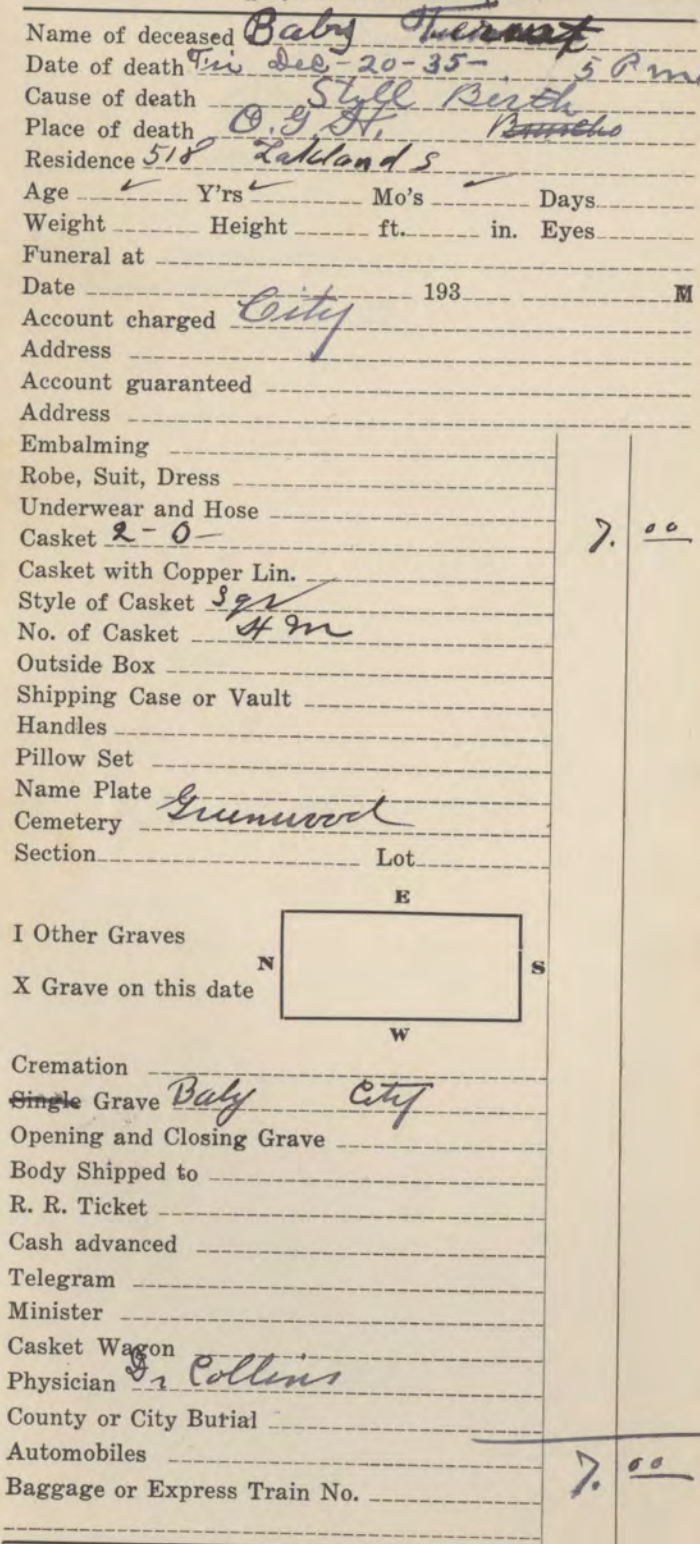 Name of deceased Baby
Date of death Fri Dec-20-35- 5 Pm
Cause of death Still Birth
Place of death O.G.H.
Residence 518 Lakland S
Age Y'rs Mo's Days
Weight Height ft. in. Eyes
Funeral at
Date 193 M
Account charged City
Address
Account guaranteed
Address
Embalming
Robe, Suit, Dress
Underwear and Hose
Casket 2-0- 7. 00
Casket with Copper Lin.
Style of Casket Sqr
No. of Casket
Outside Box
Shipping Case or Vault
Handles
Pillow Set
Name Plate
Cemetery Greenwood
Section Lot
E
I Other Graves
N S
X Grave on this date
W
Cremation
Single Grave Baby City
Opening and Closing Grave
Body Shipped to
R. R. Ticket
Cash advanced
Telegram
Minister
Casket Wagon
Physician Dr Collins
County or City Burial
Automobiles 7. 00
Baggage or Express Train No.